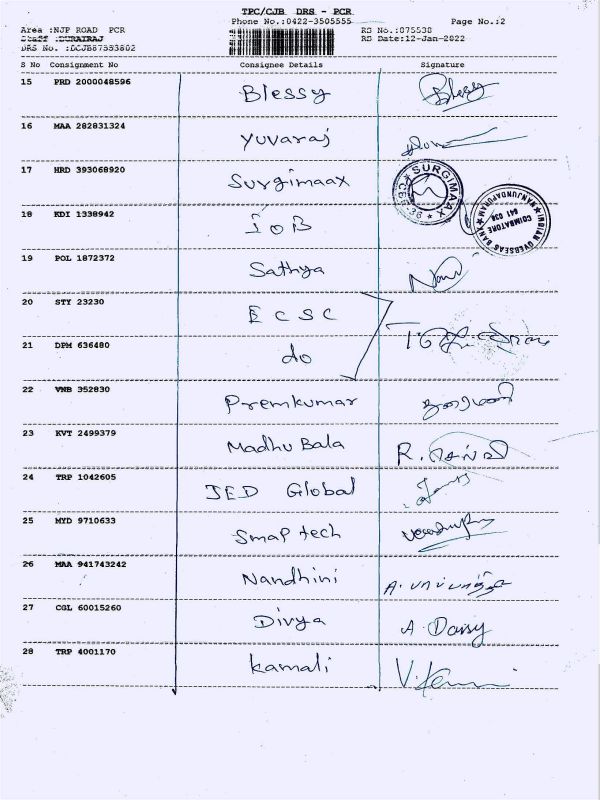 TPC/CJB DRS - PCR
Phone No.:0422-3505555 Page No.:2
Area :NJP ROAD PCR RS No.:075530
Staff :DURAIRAJ RS Date:12-Jan-2022
DRS No. :DCJB87553802
S No Consignment No Consignee Details Signature
15 PRD 2000048596 Blessy Blessy
16 MAA 282831324 Yuvaraj
17 HRD 393068920 Surgimaax
SURGIMAAX
CBE-36
18 KDI 1338942 IOB
INDIAN OVERSEAS BANK
NANJUNDAPURAM
COIMBATORE
641 036
19 POL 1872372 Sathya
20 STY 23230 ECSC
21 DPM 636480 do
22 VNB 352830 Premkumar
23 KVT 2499379 Madhu Bala R.
24 TRP 1042605 JED Global
25 MYD 9710633 Smap tech
26 MAA 941743242 Nandhini A.
27 CGL 60015260 Divya A. Daisy
28 TRP 4001170 Kamali V.